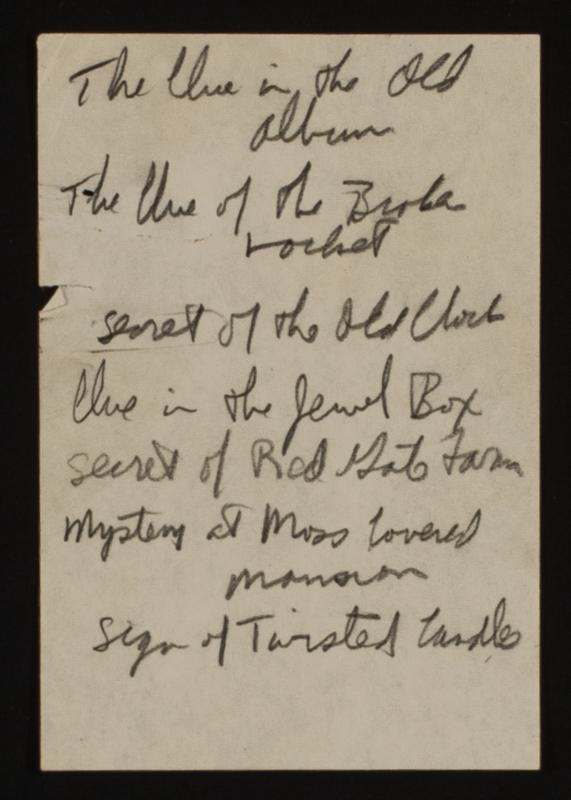 The Clue in the Old
Album
The Clue of the Broken
Locket
Secret of the Old Clock
Clue in the Jewel Box
Secret of Red Gate Farm
Mystery at Moss Covered
Mansion
Sign of Twisted Candles